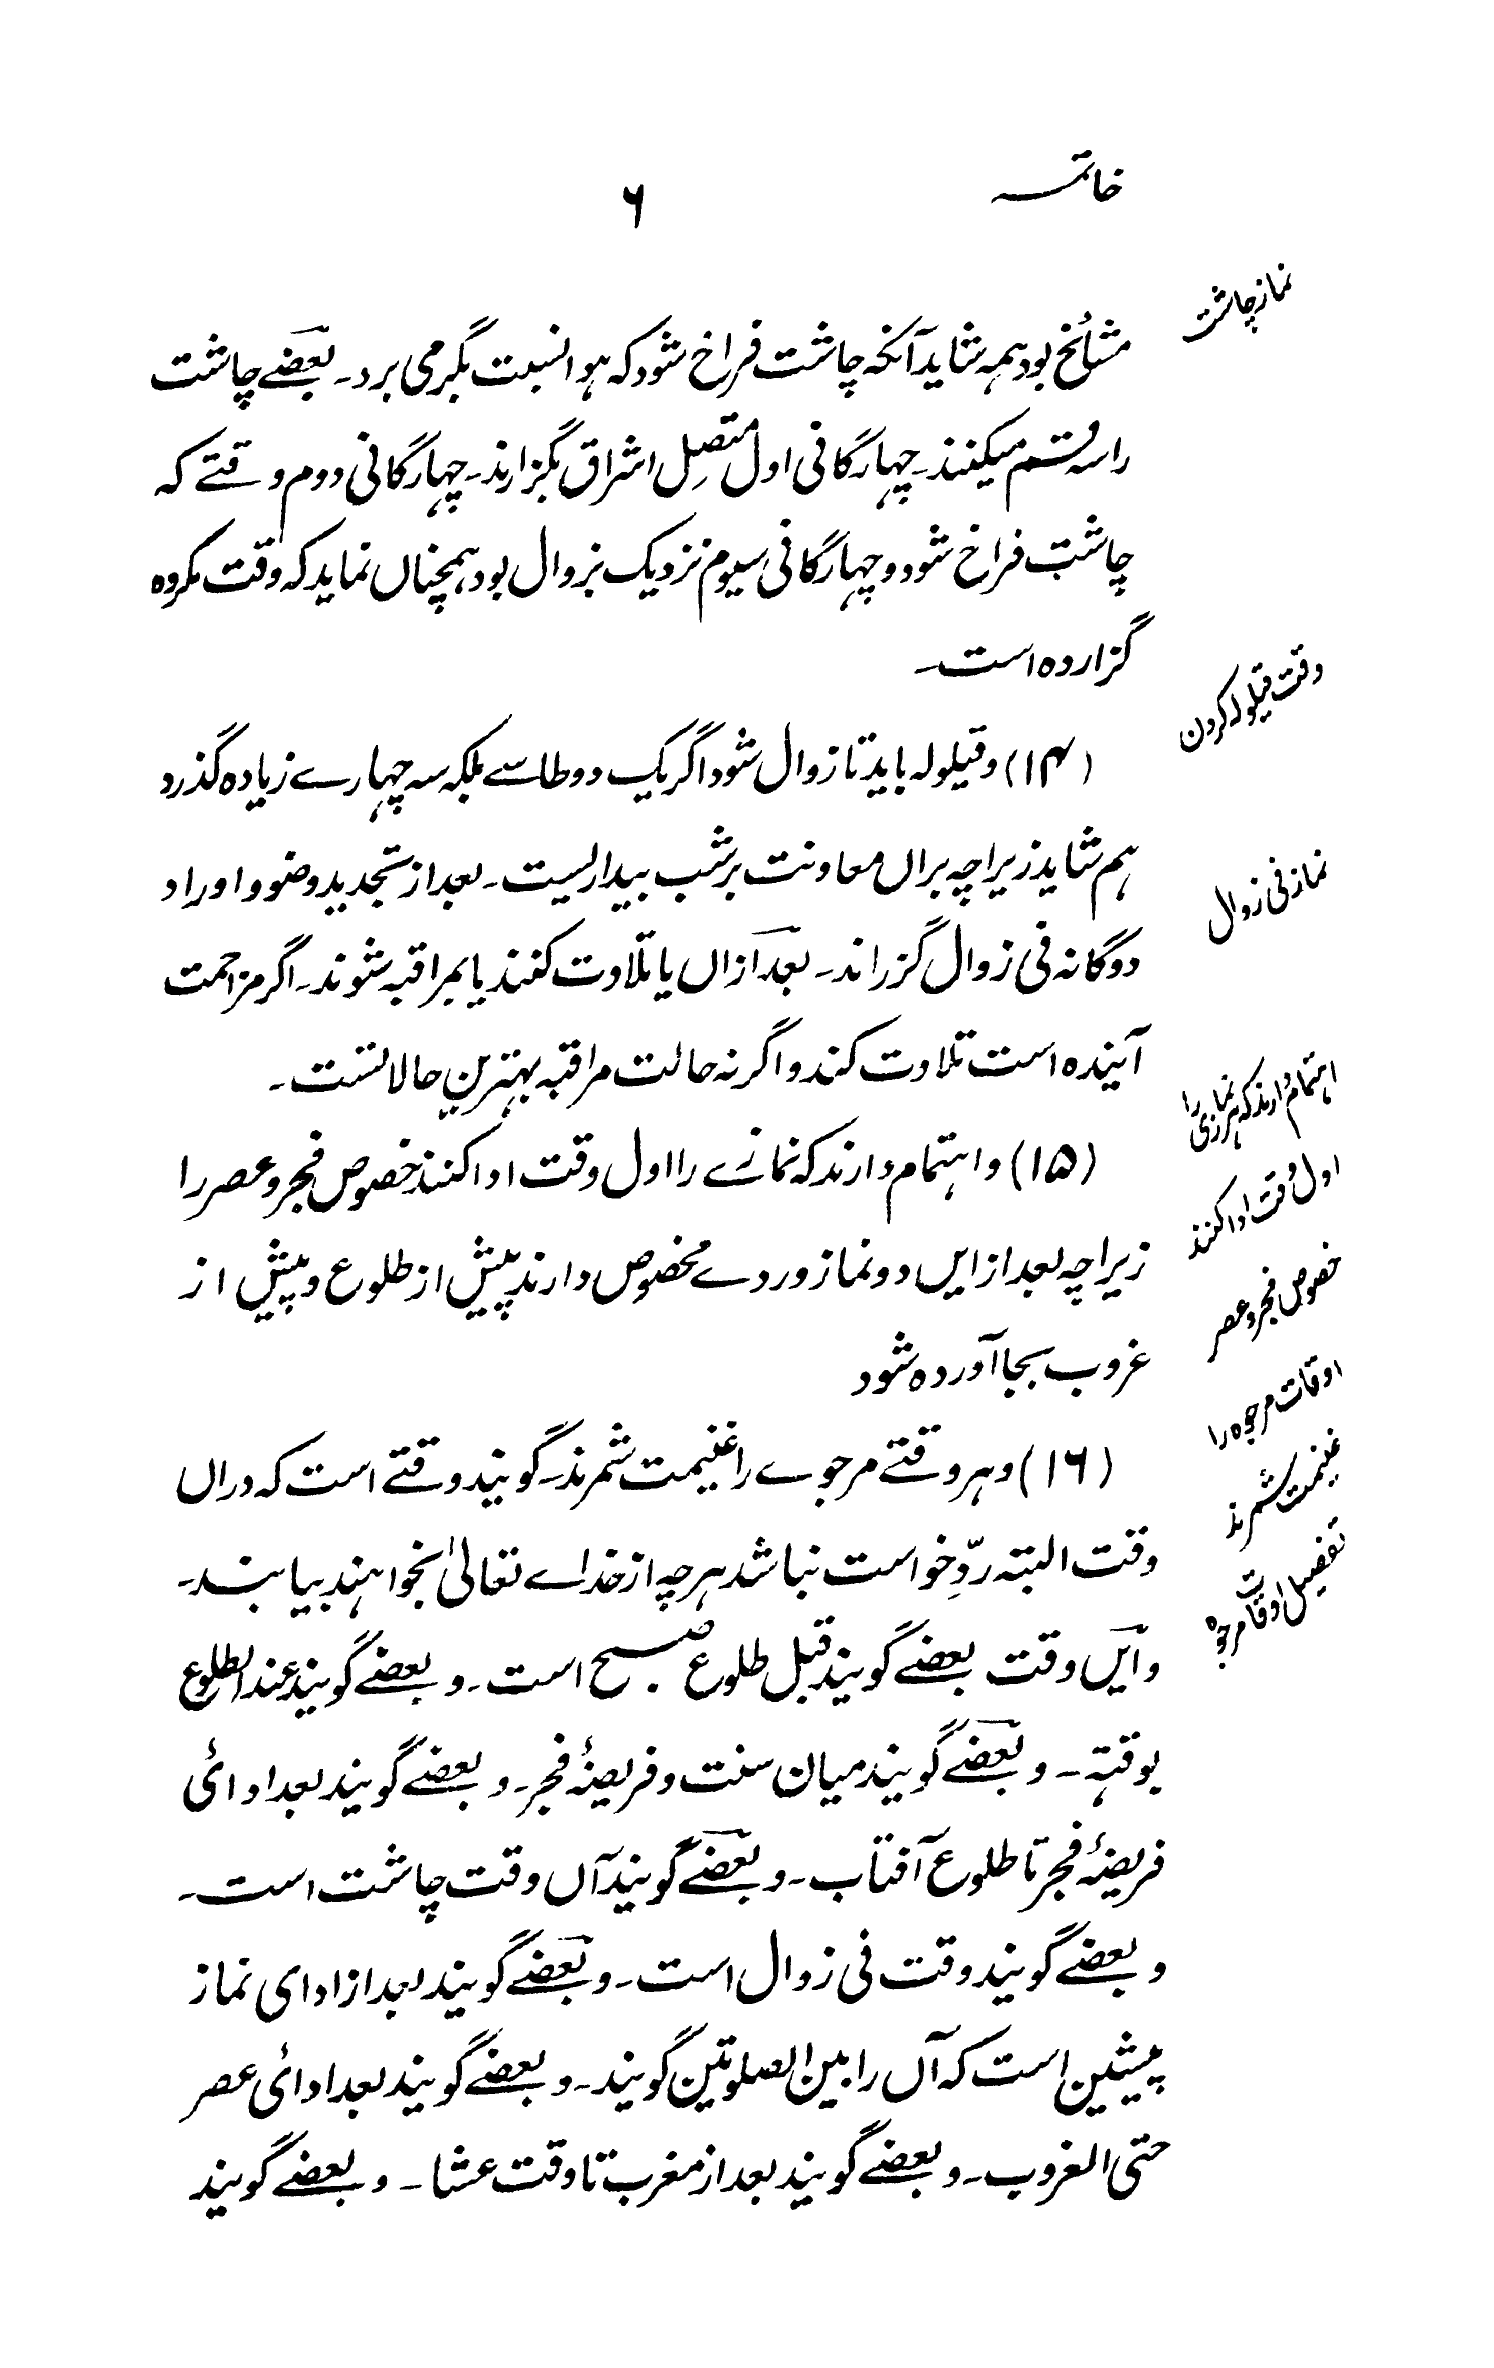 خاتمہ
۶
نماز چاشت
مشائخ بود ہمہ شاید آنکہ چاشت فراخ شود کہ ہوا نسبت بگرمی برد۔ بعضے چاشت
را سہ قسم میکنند۔ چہارگانی اول متصل اشراق بگزارند۔ چہارگانی دوم وقتے کہ
چاشت فراخ شود و چہارگانی سیوم نزدیک بزوال بود ہمچناں نماید کہ وقت مکروہ
گزاردہ است۔
وقت قیلولہ کردن
(۱۴) و قیلولہ باید تا زوال شود اگر یک دو طاسے بلکہ سہ چہارے زیادہ گذرد
ہم شاید زیراچہ براں معاونت بر شب بیداریست۔ بعد از تجدید وضو و اوراد
نماز فی زوال
دوگانہ فی زوال گزراند۔ بعد ازاں یا تلاوت کنند یا بمراقبہ شوند۔ اگر مزاحمت
آیندہ است تلاوت کند و اگر نہ حالت مراقبہ بہترین حالاتست۔
اہتمام دارند کہ ہر نمازی را
اول وقت ادا کنند
خصوص فجر و عصر
(۱۵) و اہتمام دارند کہ نمازے را اول وقت ادا کنند خصوص فجر و عصر را
زیراچہ بعد از ایں دو نماز وردے مخصوص دارند پیش از طلوع و پیش از
غروب بجا آوردہ شود
اوقات مرجوہ را
غنیمت شمرند
(۱۶) و ہر وقتے مرجوے را غنیمت شمرند۔ گویند وقتے است کہ دراں
وقت البتہ ردِّ خواست نباشد ہرچہ از خداے تعالیٰ بخواہند بیابند۔
تفصیل اوقات مرجوہ
و ایں وقت بعضے گویند قبل طلوع صبح است۔ و بعضے گویند عند الطلوع
بوقتہ۔ و بعضے گویند میان سنت و فریضۂ فجر۔ و بعضے گویند بعد ادائی
فریضۂ فجر تا طلوع آفتاب۔ و بعضے گویند آں وقت چاشت است۔
و بعضے گویند وقت فی زوال است۔ و بعضے گویند بعد از ادای نماز
پیشین است کہ آں را بین الصلوتین گویند۔ و بعضے گویند بعد ادائ عصر
حتی الغروب۔ و بعضے گویند بعد از مغرب تا وقت عشا۔ و بعضے گویند